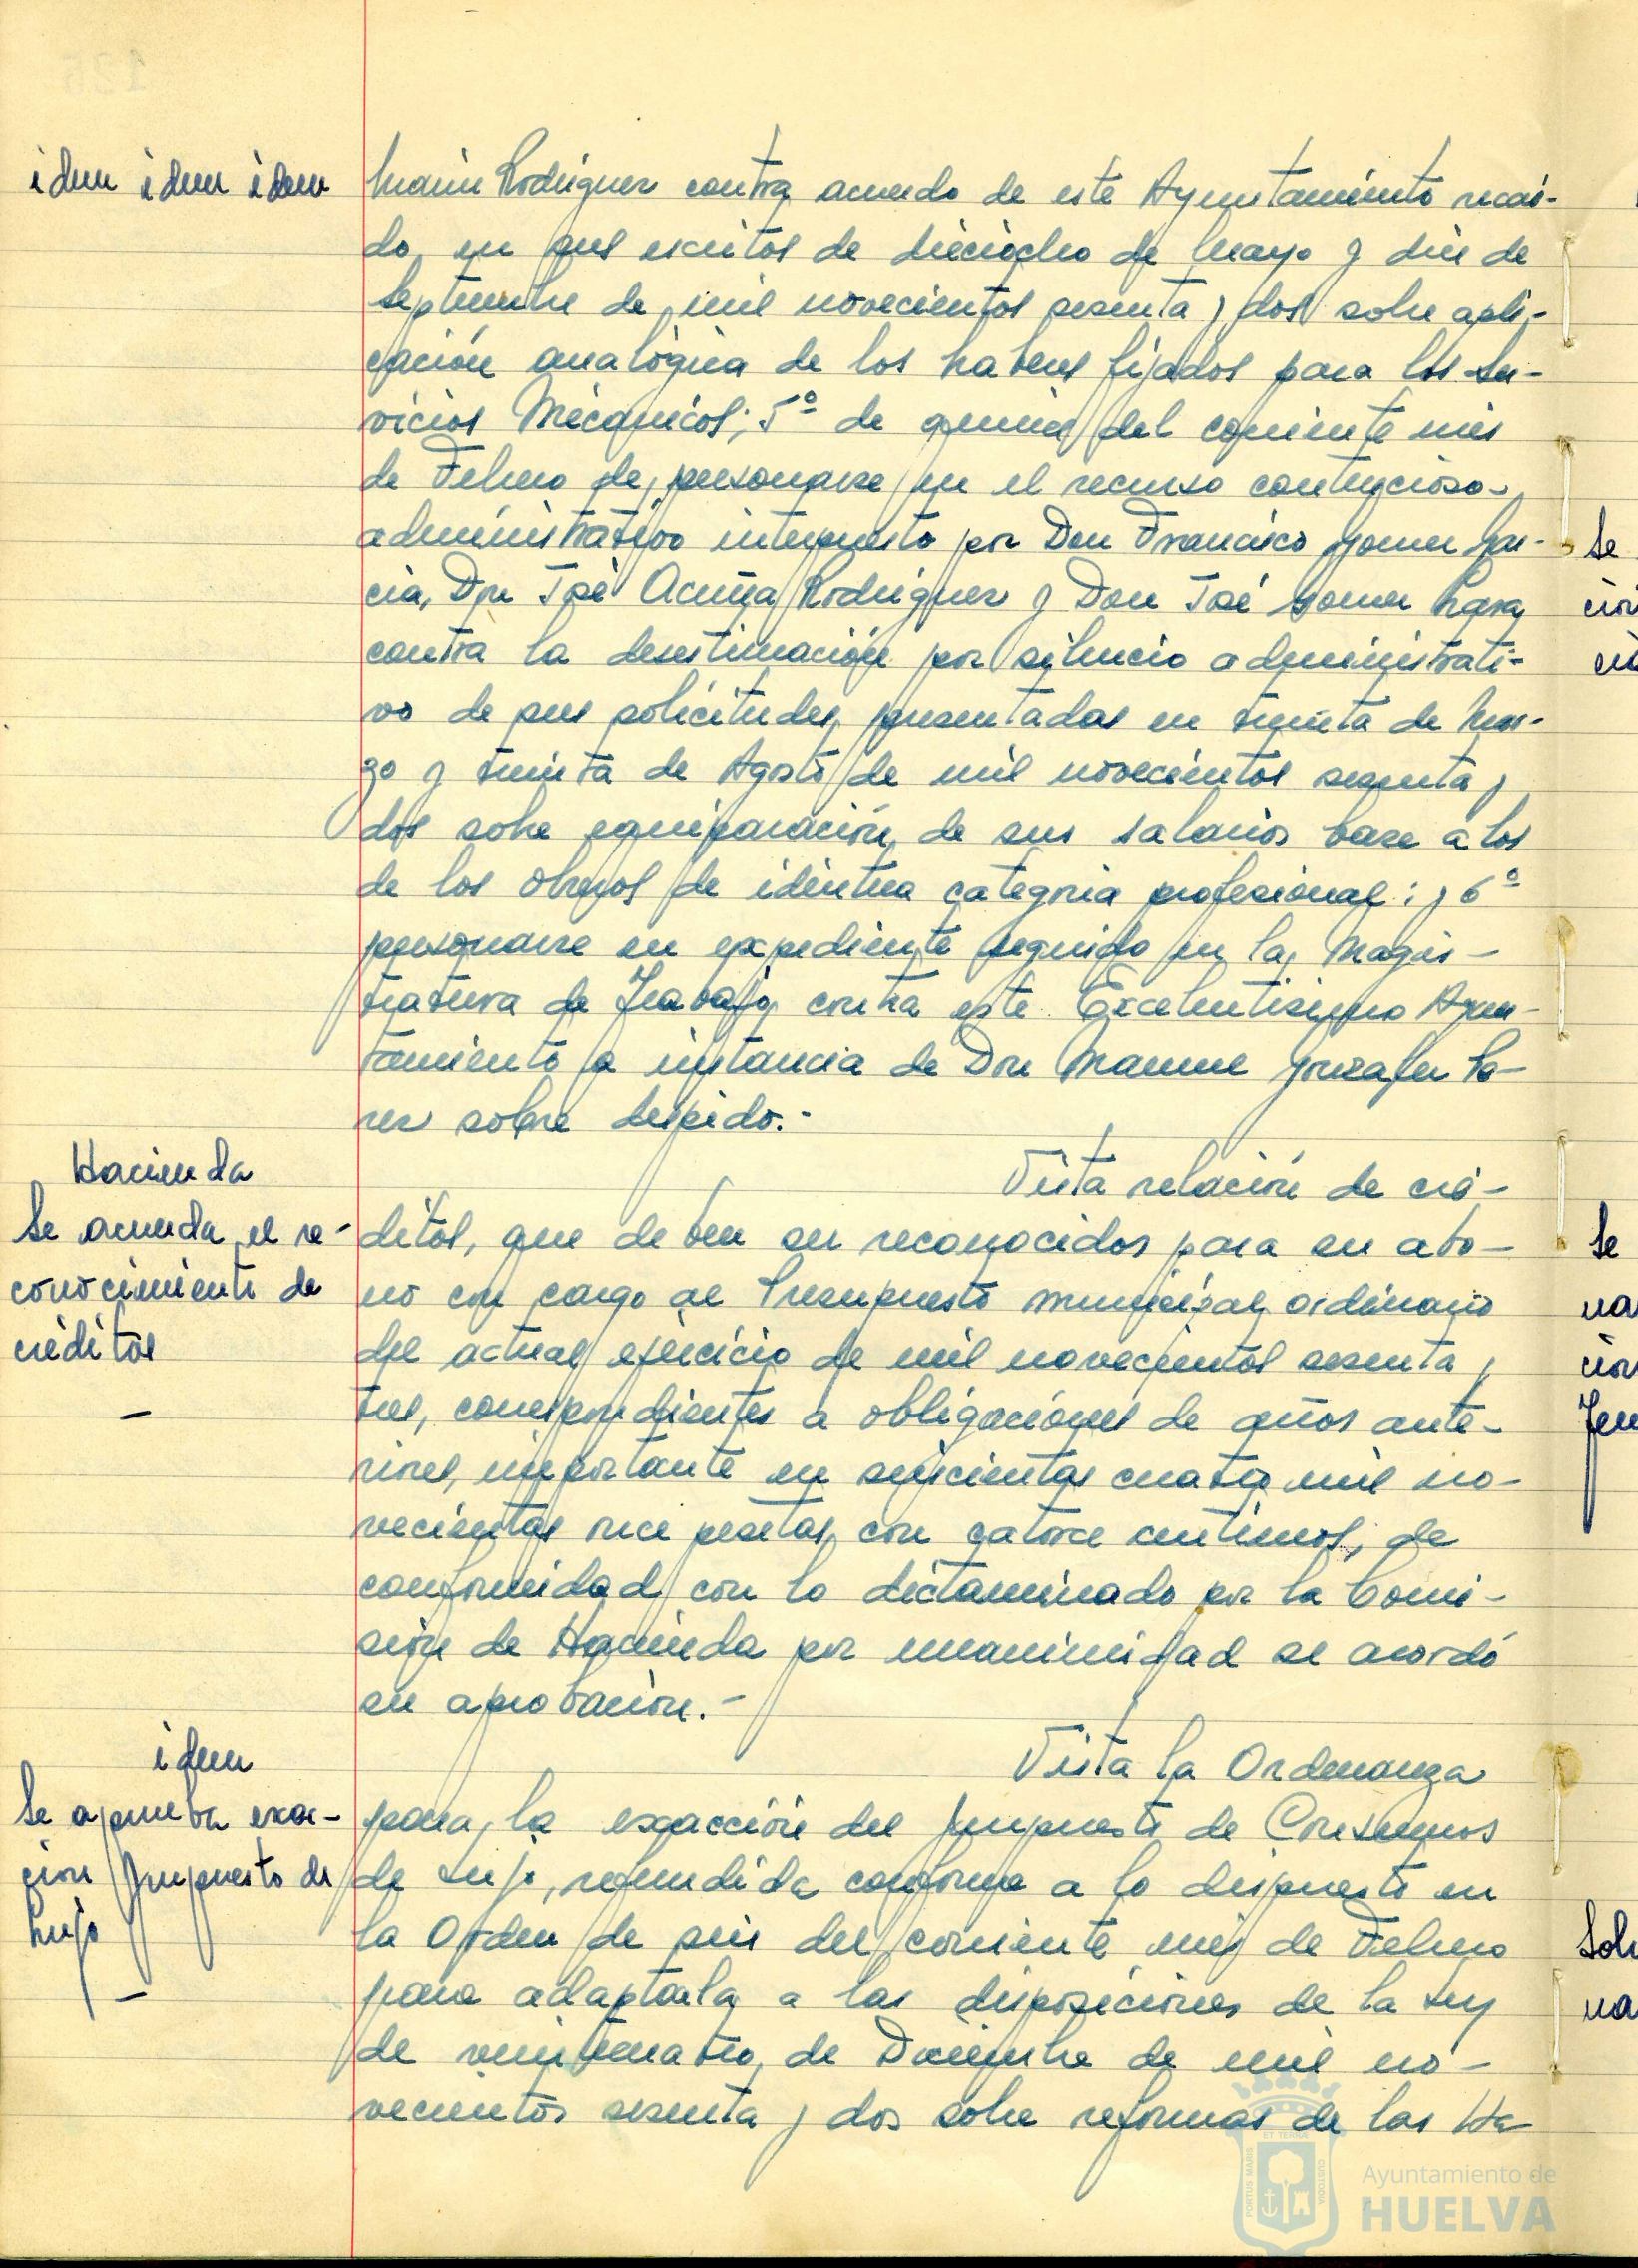 idem idem idem
Marín Rodríguez contra acuerdo de este Ayuntamiento recaí-
do en sus escritos de dieciocho de Mayo y diez de
Septiembre de mil novecientos sesenta y dos sobre apli-
cación analógica de los haberes fijados para los Ser-
vicios Mecánicos; 5º de quince del corriente mes
de Febrero de personarse en el recurso contencioso-
administrativo interpuesto por Don Francisco Gomez Gar-
cia, Don José Acuña Rodriguez y Don José Gomez
contra la desestimación por silencio administrati-
vo de sus solicitudes presentadas en treinta de Mar-
zo y treinta de Agosto de mil novecientos sesenta y
dos sobre equiparación de sus salarios base a los
de los obreros de idéntica categoria profesional; y 6º
personarse en expediente seguido en la Magis-
tratura de Trabajo contra este Excelentisimo Ayun-
tamiento a instancia de Don Manuel Gonzalez
sobre despido.-
Hacienda
Se acuerda el re-
conocimiento de
créditos
Vista relación de cré-
ditos, que deben ser reconocidos para su abo-
no con cargo al Presupuesto municipal ordinario
del actual ejercicio de mil novecientos sesenta y
tres, correspondientes a obligaciones de años ante-
riores, importante en seiscientas cuatro mil no-
vecientas once pesetas con catorce centimos; de
conformidad con lo dictaminado por la Comi-
sión de Hacienda por unanimidad se acordó
su aprobación.-
idem
Se aprueba exac-
cion Impuesto de
lujo
Vista la Ordenanza
para la exacción del Impuesto de Consumos
de Lujo, refundida conforme a lo dispuesto en
la Orden de seis del corriente mes de Febrero
para adaptarla a las disposiciones de la Ley
de veinticuatro de Diciembre de mil no-
vecientos sesenta y dos sobre reformas de las Ha
Ayuntamiento de
HUELVA